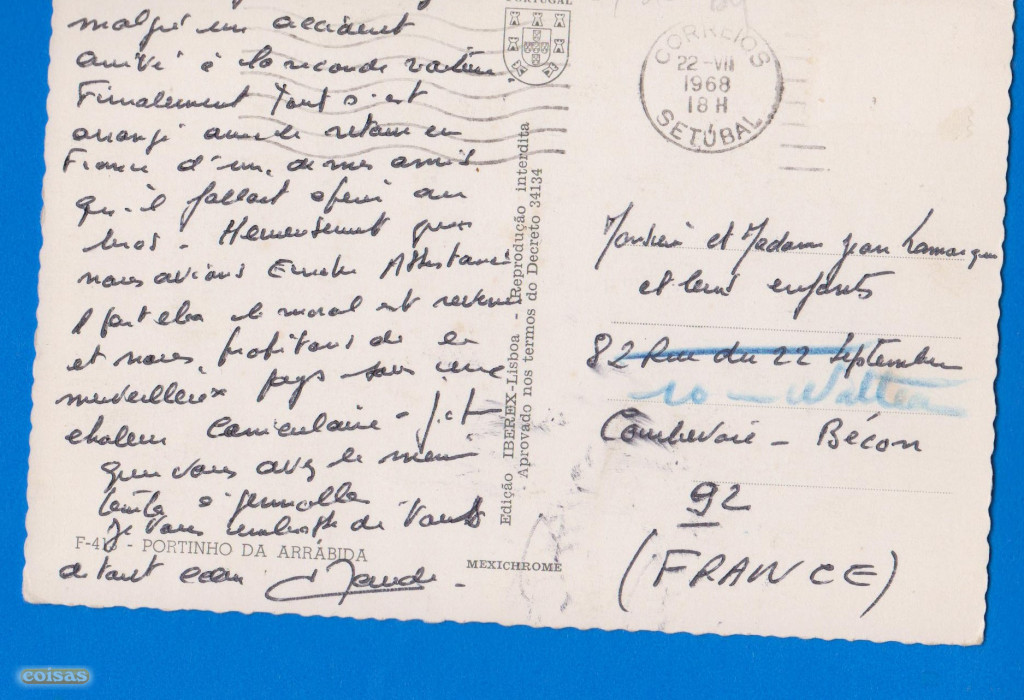 malgré un accident
arrivé à la seconde voiture
Finalement tout s'est
arrangé avec le retour en
France d'un de mes amis
qu'il fallait opérer au
bras. Heureusement que
nous avions Assistance
le moral est revenu
et nous profitons de ce
merveilleux pays sous une
chaleur caniculaire - j'espère
que vous avez le même
temps à
Je vous embrasse de tout
F-41 - PORTINHO DA ARRÁBIDA
Claude
PORTUGAL
Edição IBEREX-Lisboa - Reprodução interdita
Aprovado nos termos do Decreto 34134
MEXICHROME
CORREIOS
22-VII
1968
18 H
SETÚBAL
Monsieur et Madame Jean Lamarque
et leurs enfants
82 Rue du 22 Septembre
10
Courbevoie - Bécon
92
(FRANCE)
coisas